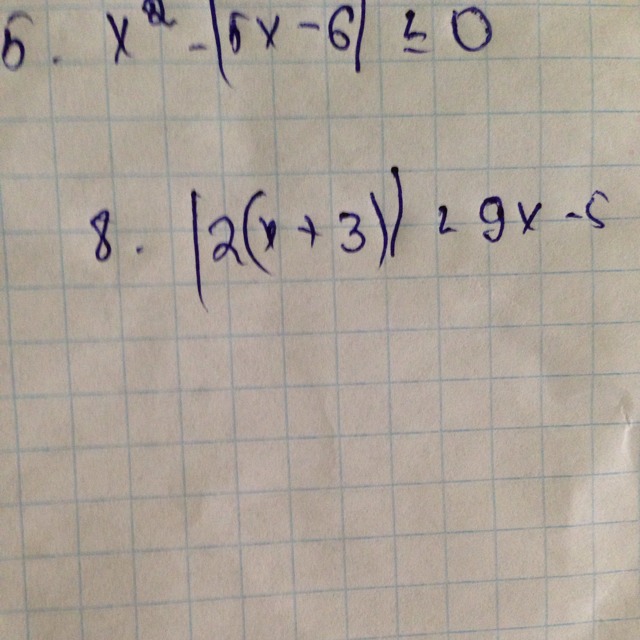 5. x² - |5x - 6| = 0
8. |2(x + 3)| = 9x - 5